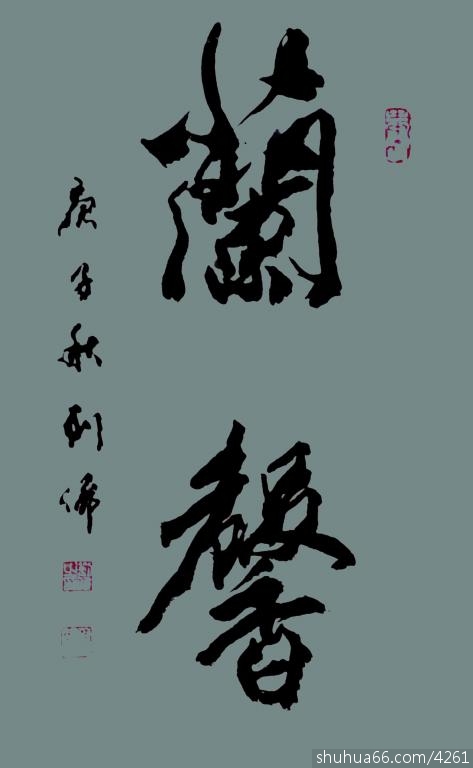 蘭馨
庚子秋利佛
shuhua66.com/4261